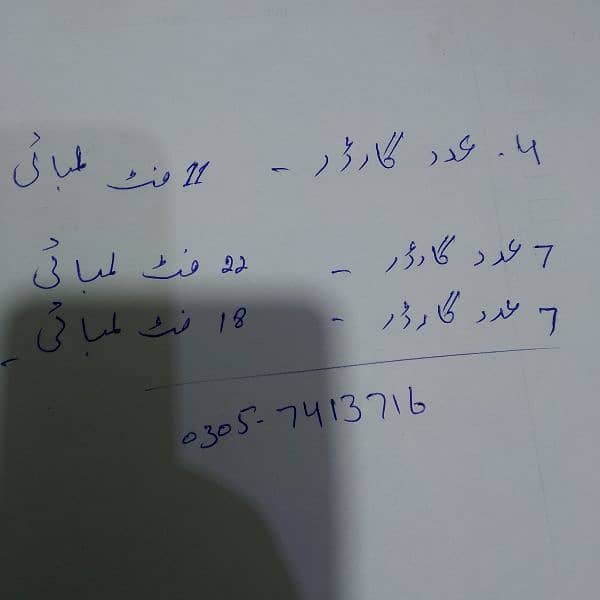 4. عدد گارڈر - 11 فٹ لمبائی
7 عدد گارڈر - 22 فٹ لمبائی
7 عدد گارڈر - 18 فٹ لمبائی -
0305-7413716